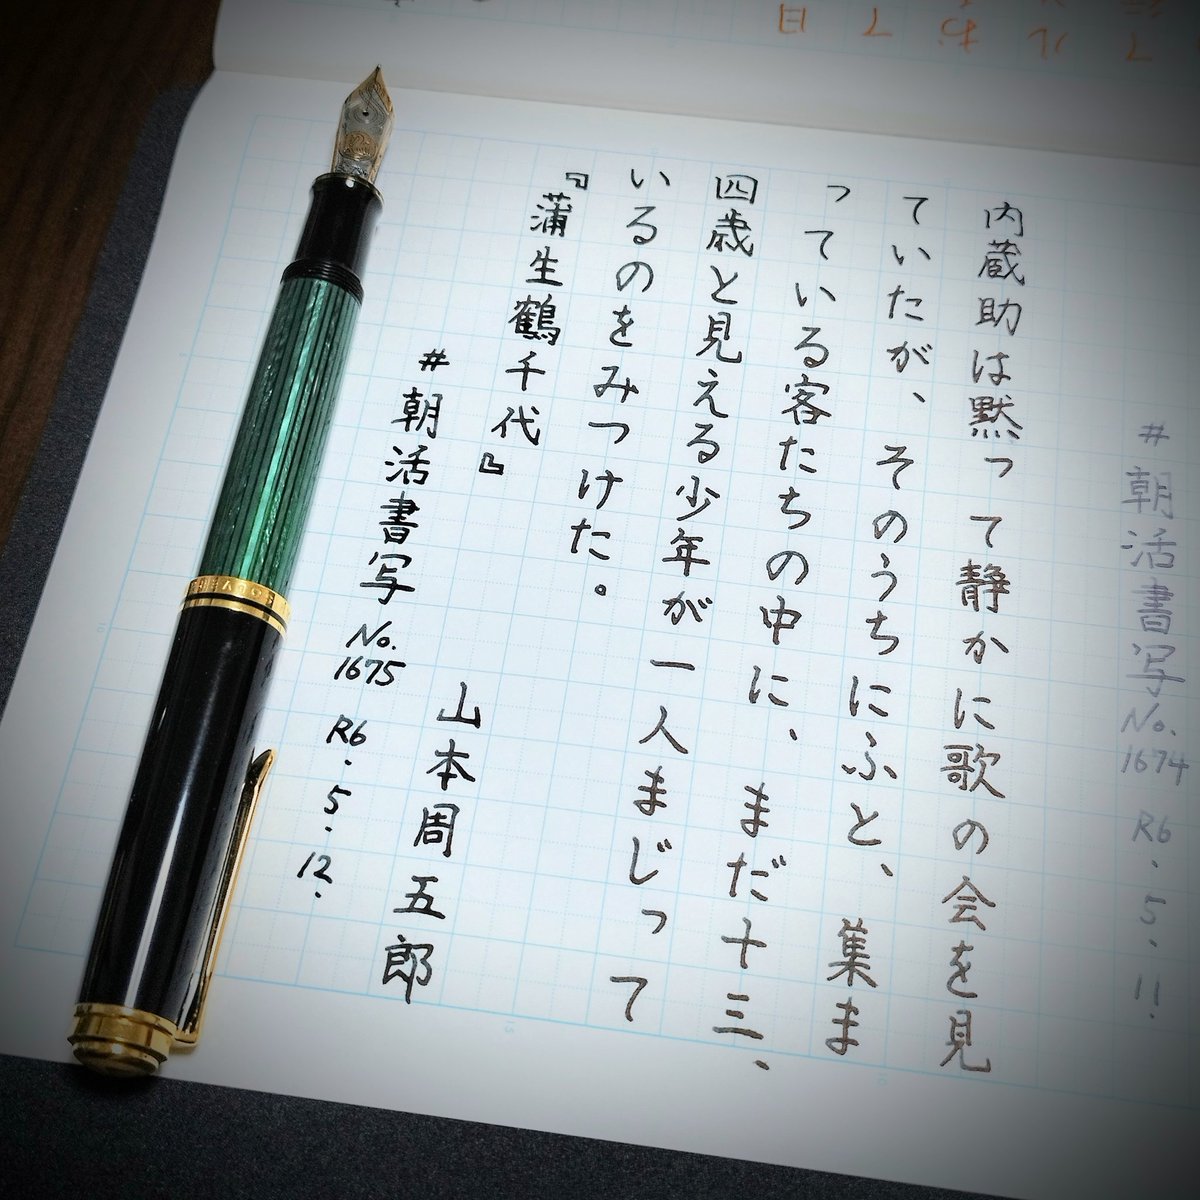 #朝活書写No.1674 R6.5.11.
内蔵助は黙って静かに歌の会を見
ていたが、そのうちにふと、集ま
っている客たちの中に、まだ十三、
四歳と見える少年が一人まじって
いるのをみつけた。
『蒲生鶴千代』
山本周五郎
#朝活書写 No.1675 R6.5.12.